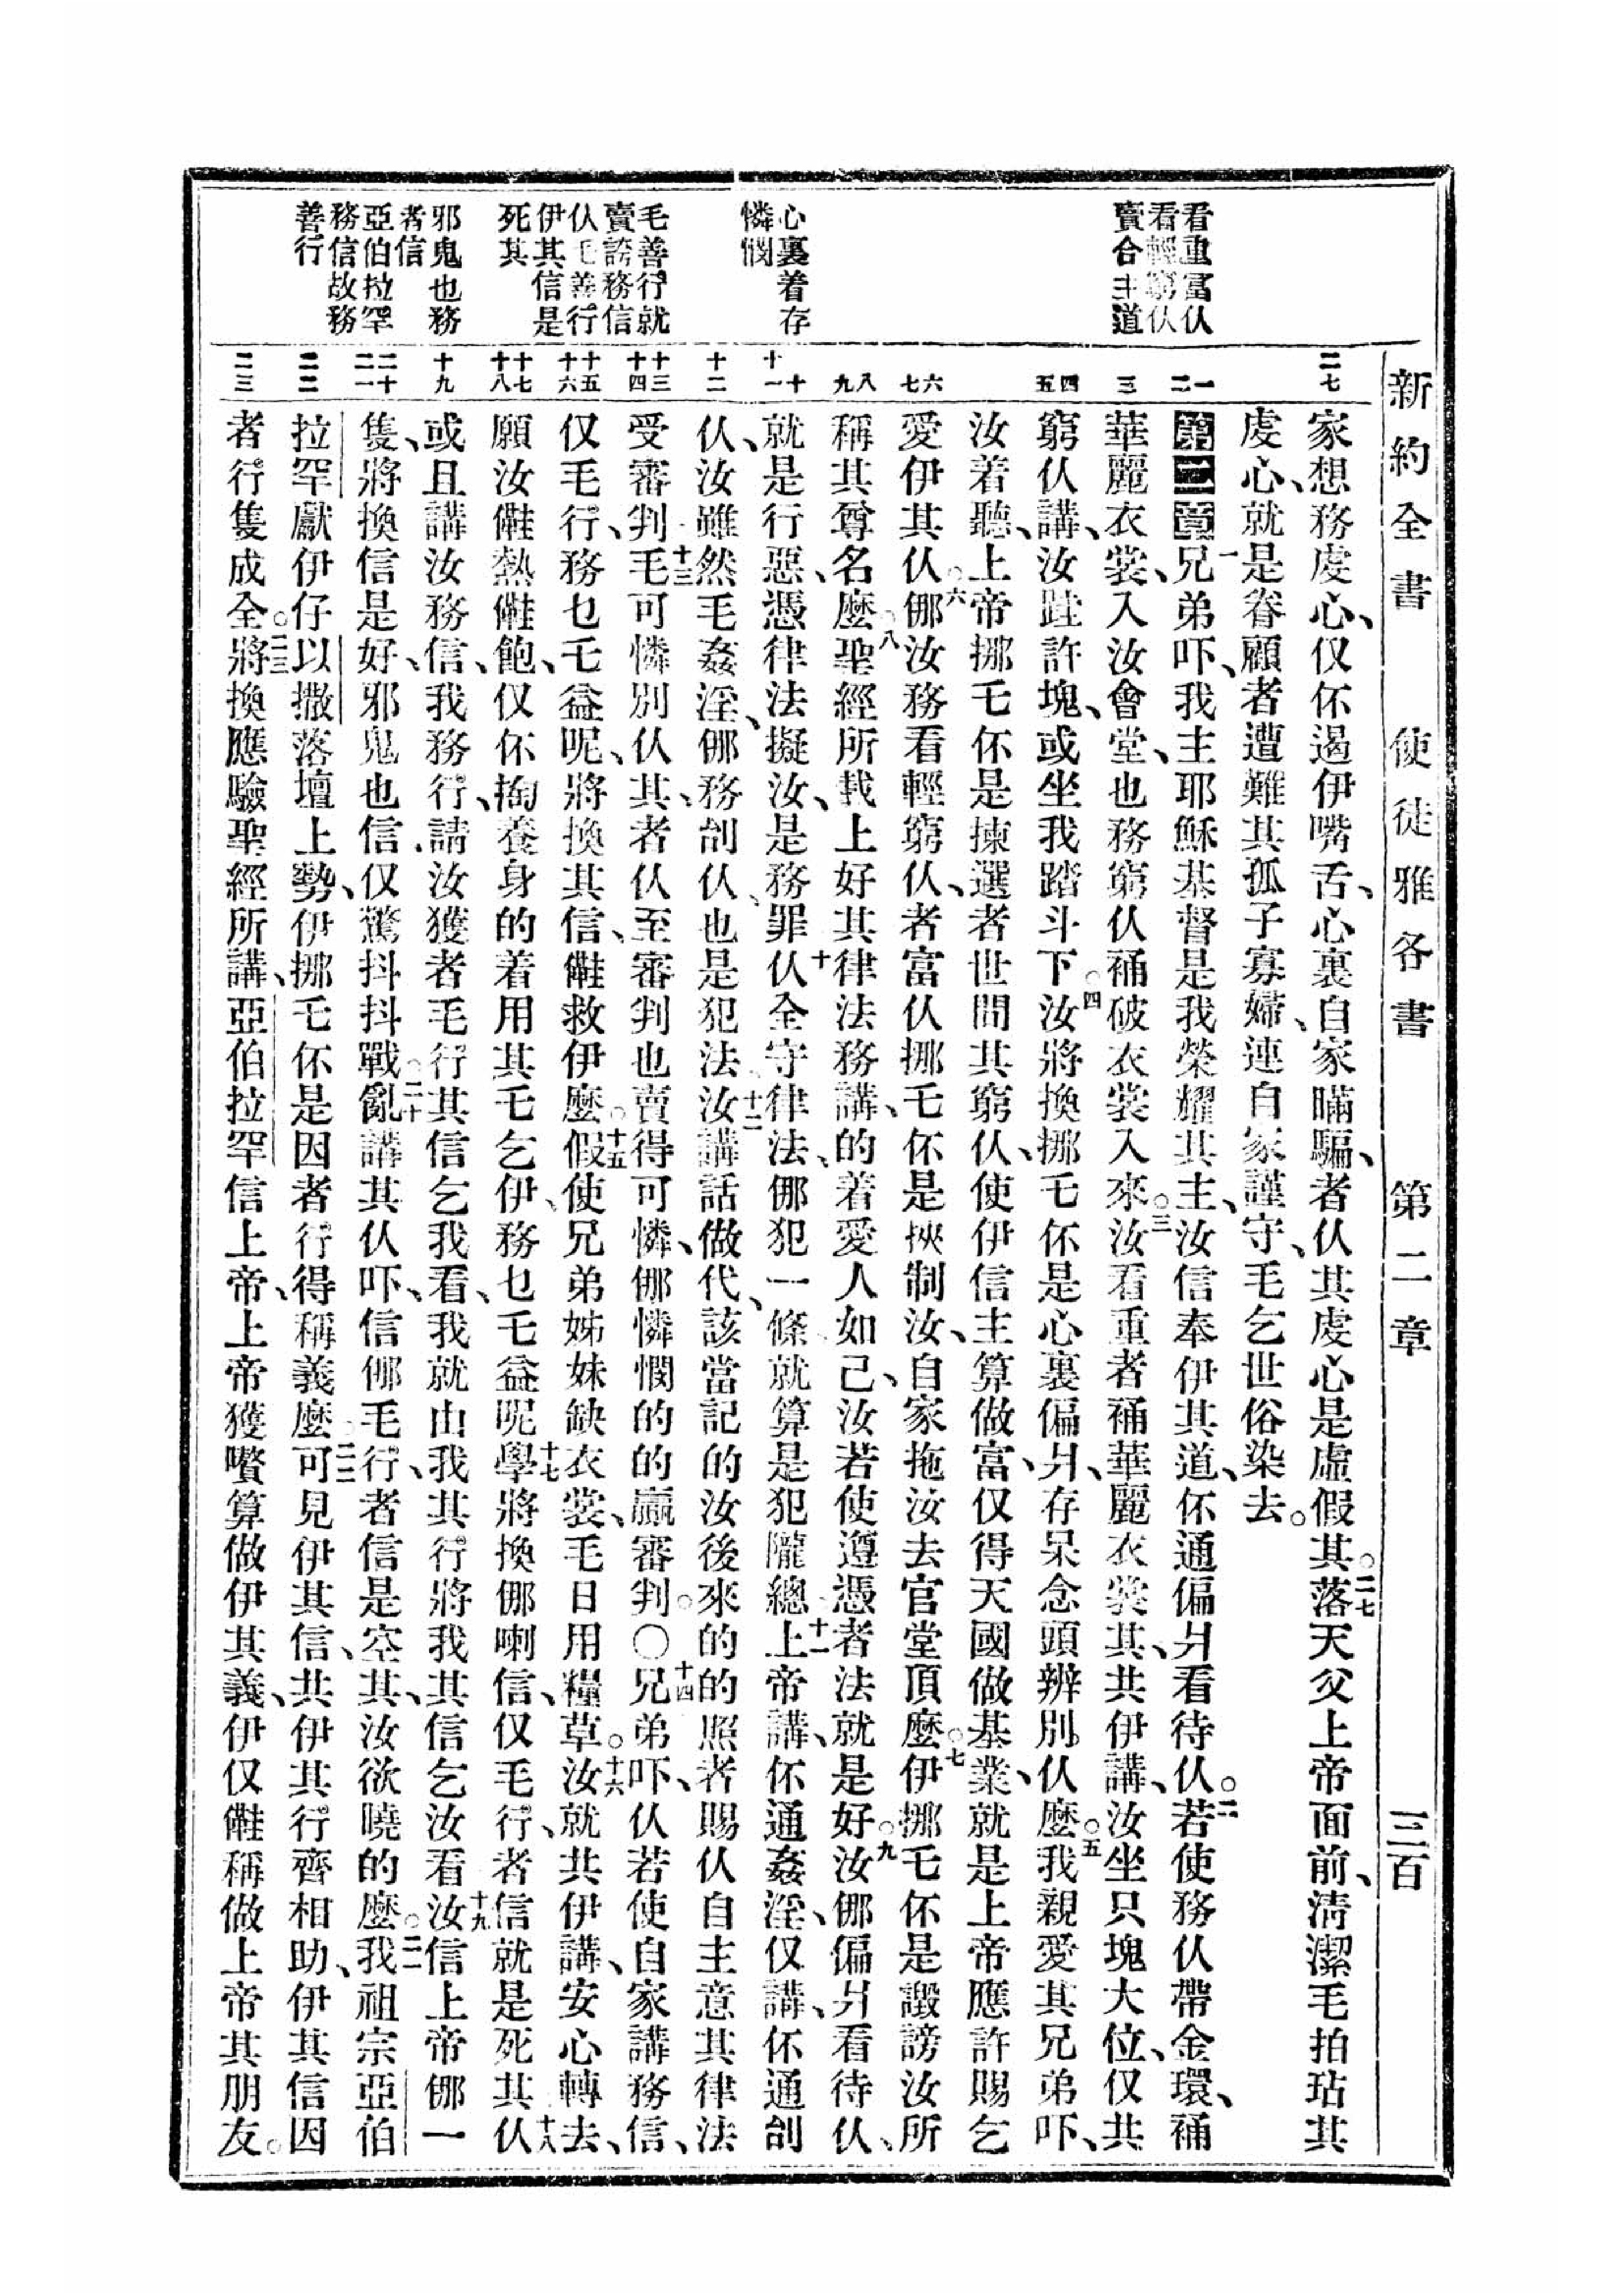 新約全書 使徒雅各書 第二章 三百
看重富仈
看輕窮仈
賣合主道
心裏着存
憐憫
毛善行就
賣誇務信
仈毛善行
伊其信是
死其
邪鬼也務
者信
亞伯拉罕
務信故務
善行
二七
一
二
三
四
五
六
七
八
九
十
十一
十二
十三
十四
十五
十六
十七
十八
十九
二十
二一
二二
二三
家想務虔心、仅伓遏伊嘴舌、心裏自家瞞騙、者仈其虔心是虛假其。二七落天父上帝面前、淸潔毛拍玷其
虔心、就是眷顧者遭難其孤子寡婦、連自家謹守、毛乞世俗染去。
第二章 一兄弟吓、我主耶穌基督是我榮耀其主、汝信奉伊其道、伓通偏爿看待仈。二若使務仈帶金環、䘄
華麗衣裳、入汝會堂、也務窮仈䘄破衣裳入來。三汝看重者䘄華麗衣裳其、共伊講、汝坐只塊大位、仅共
窮仈講、汝跬許塊、或坐我踏斗下。四汝將換挪乇伓是心裏偏爿、存呆念頭辨別仈麽。五我親愛其兄弟吓、
汝着聽、上帝挪乇伓是揀選者世間其窮仈、使伊信主算做富、仅得天國做基業、就是上帝應許賜乞
愛伊其仈。六㑚汝務看輕窮仈、者富仈挪乇伓是挾制汝、自家拖汝去官堂頂麽。七伊挪乇伓是譭謗汝所
稱其尊名麽。八聖經所載上好其律法務講、的着愛人如己、汝若使遵憑者法就是好。九汝㑚偏爿看待仈、
就是行惡、憑律法擬汝、是務罪仈。十全守律法、㑚犯一條就算是犯隴總。十一上帝講、伓通姦淫、仅講、伓通刣
仈、汝雖然毛姦淫、㑚務刣仈、也是犯法。十二汝講話做代、該當記的汝後來的的照者賜仈自主意其律法
受審判。十三毛可憐別仈其、者仈至審判也賣得可憐、㑚憐憫的的贏審判。〇十四兄弟吓、仈若使自家講務信、
仅毛行、務乜乇益呢、將換其信、𣍐救伊麽。十五假使兄弟姊妹缺衣裳、毛日用糧草。十六汝就共伊講、安心轉去、
願汝𠐁熱𠐁飽、仅伓掏養身的着用其乇乞伊、務乜乇益呢。十七學將換㑚喇信、仅毛行、者信就是死其。十八仈
或且講、汝務信、我務行、請汝獲者毛行其信乞我看、我就由我其行將我其信乞汝看。十九汝信上帝㑚一
隻、將換信是好、邪鬼也信、仅驚抖抖戰。二十亂講其仈吓、信㑚毛行、者信是空其、汝欲曉的麽。二一我祖宗亞伯
拉罕獻伊仔以撒落壇上勢、伊挪乇伓是因者行得稱義麽。二二可見伊其信、共伊其行齊相助、伊其信因
者行隻成全。二三將換應驗聖經所講、亞伯拉罕信上帝、上帝獲嚽算做伊其義、伊仅𠐁稱做上帝其朋友。